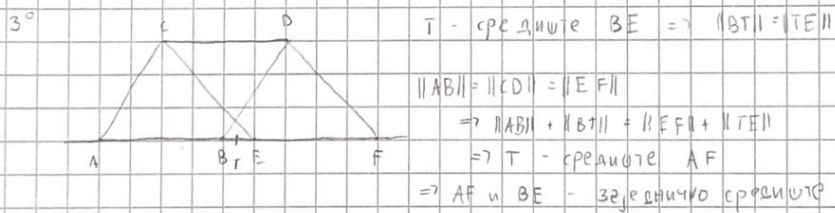 3°
C D
T - средиште BE => ||BT|| = ||TE||
||AB|| = ||CD|| = ||EF||
=> ||AB|| + ||BT|| = ||EF|| + ||TE||
=> T - средиште AF
A B T E F
=> AF и BE - заједничко средиште